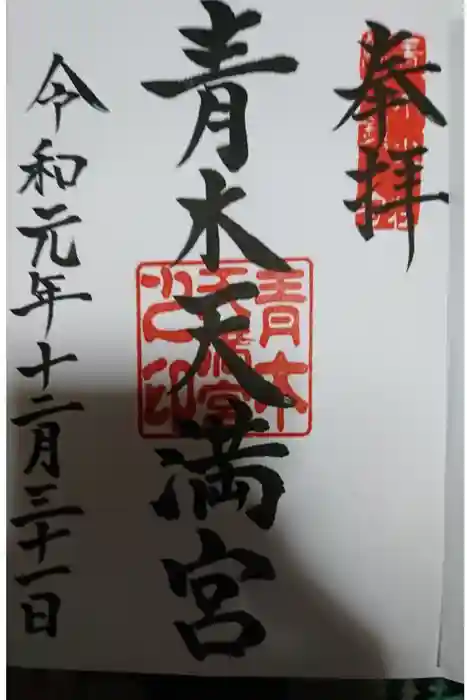 奉拝
青木天満宮
令和元年十二月三十一日
青木
天満宮
之印